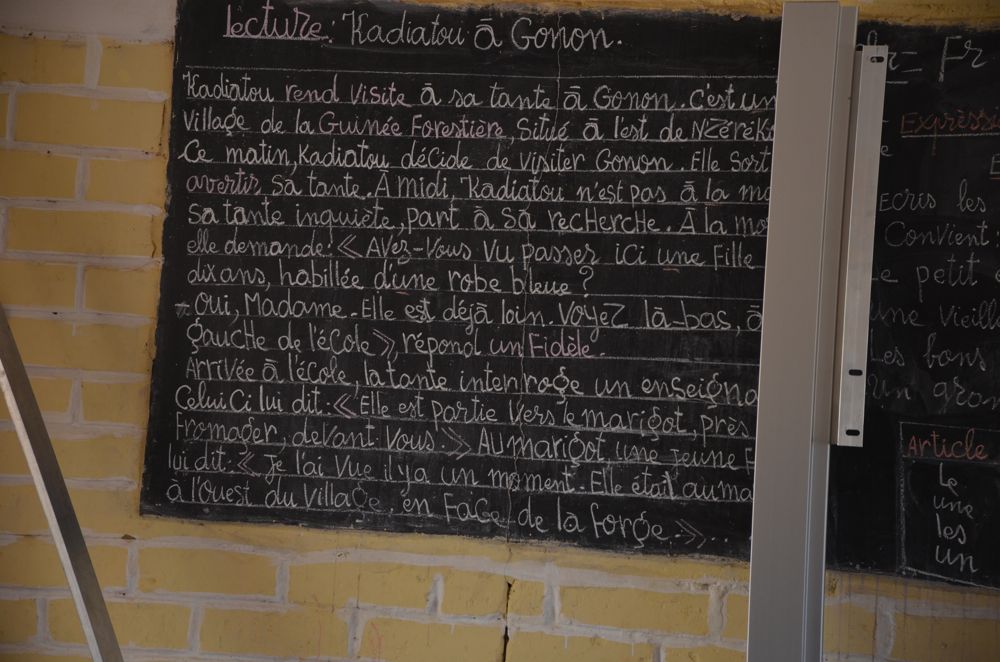 lecture: Kadiatou à Gonon.
Kadiatou rend visite à sa tante à Gonon. C'est un
village de la Guinée Forestière, Situé à l'est de NZéréko
Ce matin, Kadiatou décide de visiter Gonon. Elle sort
avertir sa tante. À midi Kadiatou n'est pas à la ma
Sa tante inquiète, part à sa recherche. À la mo
elle demande: « Avez-vous vu passer ici une Fille
dix ans, habillée d'une robe bleue ?
- Oui, Madame. Elle est déjà loin. Voyez là-bas, à
gauche de l'école », répond un Fidèle.
Arrivée à l'école, la tante interroge un enseigna
Celui Ci lui dit: « Elle est partie vers le marigot, près
Fromager, devant vous. » Au marigot une jeune F
lui dit: « Je l'ai vue il y a un moment. Elle était au ma
à l'ouest du village, en Face de la forge »...
= Fr
Expressi
Ecris les
Convient
e petit
une vieill
Les bons,
un gran
Article
Le
une
les
un